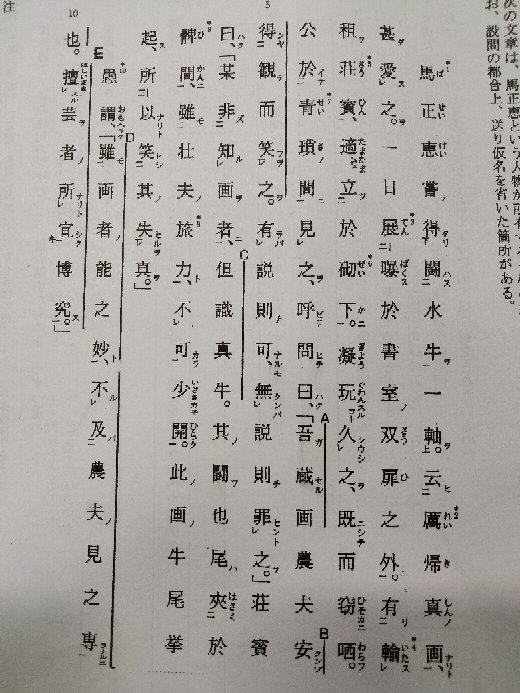 次の文章は、馬正恵という人物が
お、設問の都合上、送り仮名を省いた箇所がある。
馬正恵嘗得闘水牛一軸。云厲帰真画、
甚愛之。一日展曝於書室双扉之外。有輸
租荘賓、適立於砌下。凝玩久之、既而窃哂。
公於青瑣間見之、呼問曰、「吾蔵画農夫安
得観而笑之。有説則可、無説則罪之。」荘賓
曰、「某非知画者、但識真牛。其闘也尾夾於
髀間、雖壮夫旅力、不可少開。此画牛尾挙
起、所以笑其失真。」
愚謂、「雖画者能之妙、不及農夫見之専
也。擅芸者所宜博究。」
注